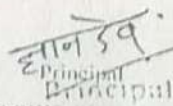 ज्ञान देव
Principal
Principal